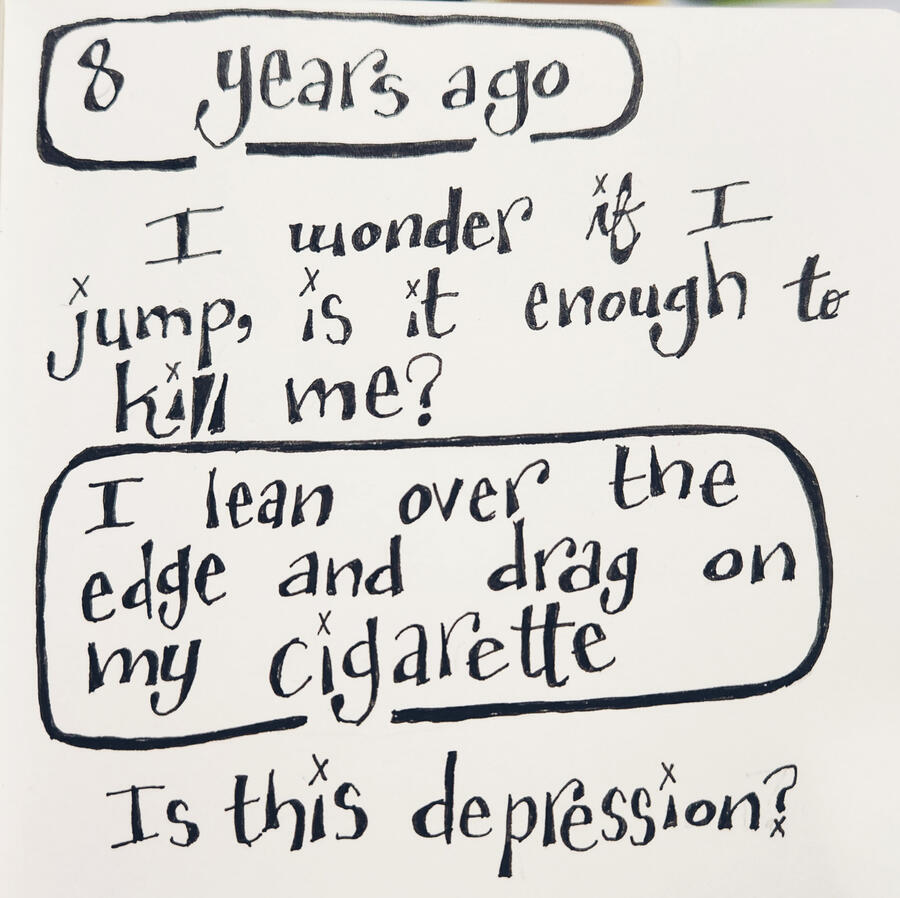 8 years ago
I wonder if I
jump, is it enough to
kill me?
I lean over the
edge and drag on
my cigarette
Is this depression?